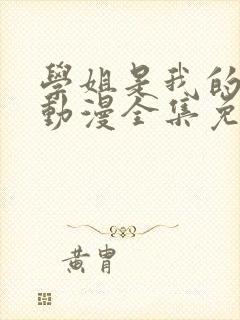 學姐是我的
動漫全集免
黃胄